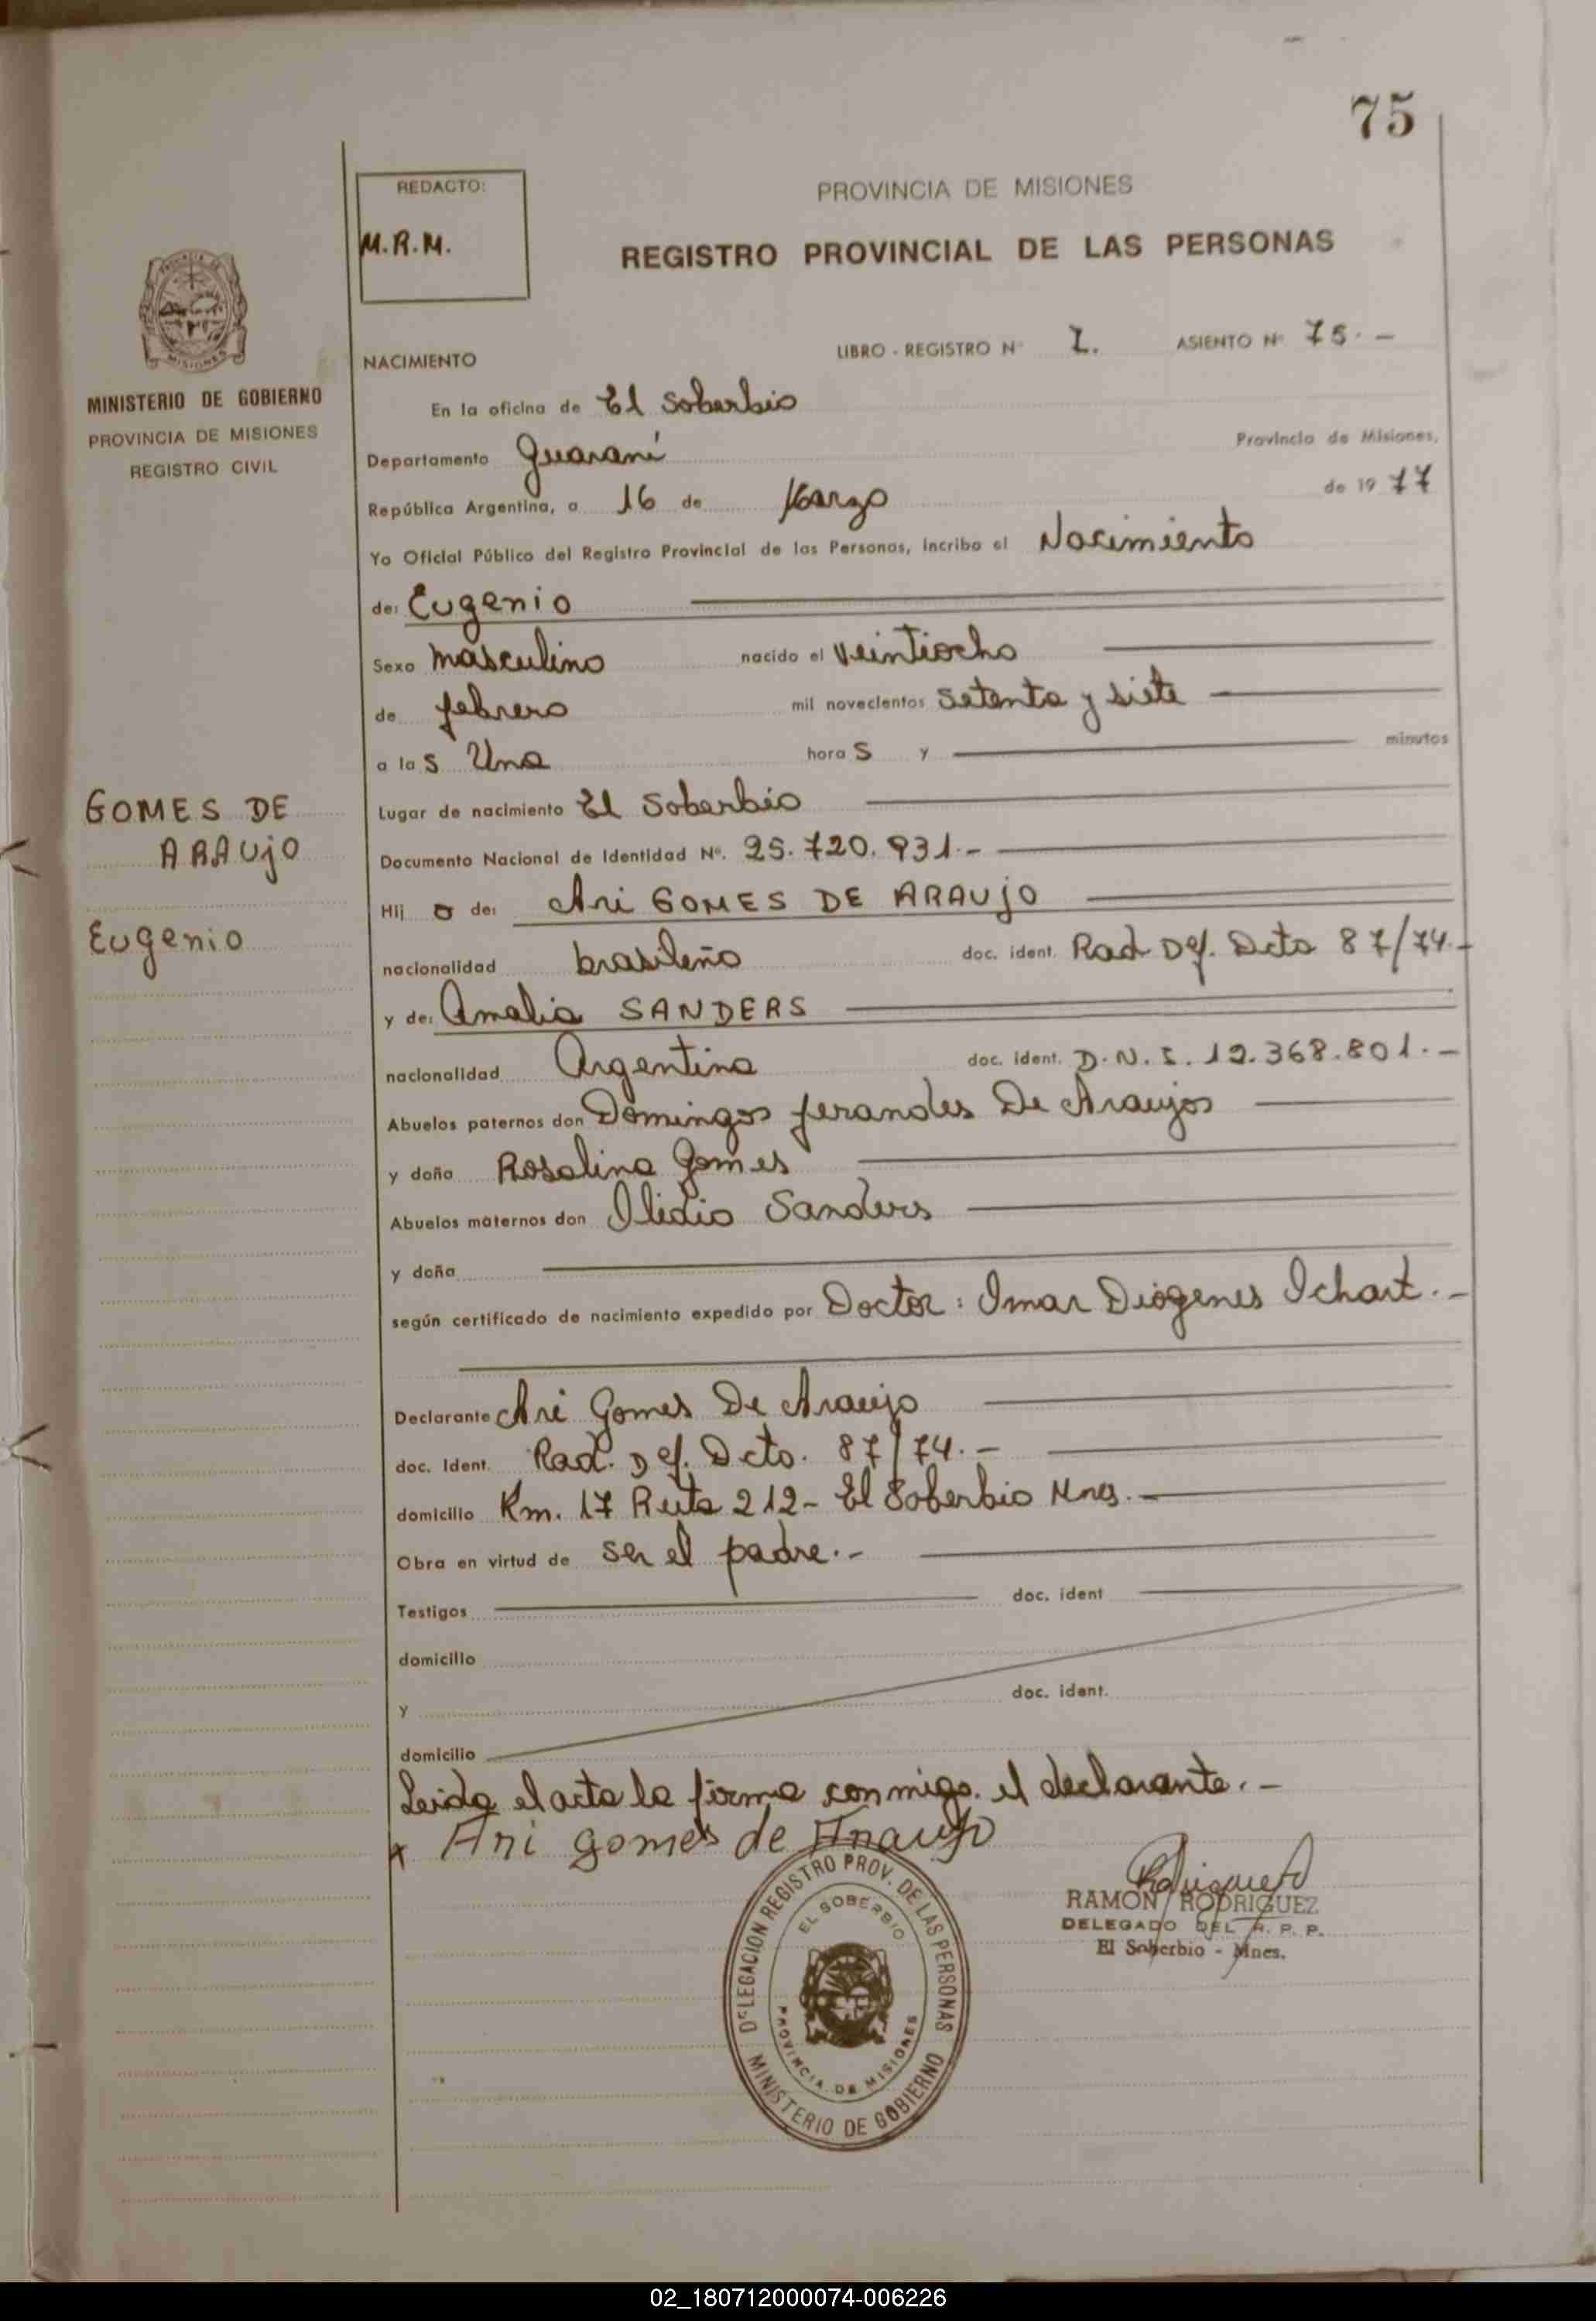 75
REDACTO:
M.R.M.
PROVINCIA DE MISIONES
REGISTRO PROVINCIAL DE LAS PERSONAS
PROVINCIA DE MISIONES
MINISTERIO DE GOBIERNO
PROVINCIA DE MISIONES
REGISTRO CIVIL
NACIMIENTO LIBRO - REGISTRO Nº I. ASIENTO Nº 75.-
En la oficina de El Soberbio
Departamento Guaraní Provincia de Misiones,
República Argentina, a 16 de Marzo de 1977
Yo Oficial Público del Registro Provincial de las Personas, inscribo el Nacimiento
de: Eugenio
Sexo masculino nacido el veintiocho
de febrero mil novecientos setenta y siete
a las Una horas y minutos
GOMES DE
ARAUjO
Eugenio
Lugar de nacimiento El Soberbio
Documento Nacional de Identidad Nº. 25.720.931.-
Hij o de: Ari GOMES DE ARAUjO
nacionalidad brasileño doc. ident. Rad Def. Dcto 87/74.-
y de: Amalia SANDERS
nacionalidad Argentina doc. ident. D.N.I. 12.368.801.-
Abuelos paternos don Domingos ferandes De Araujos
y doña Rosalina Gomes
Abuelos maternos don Ilidio Sanders
y doña
según certificado de nacimiento expedido por Doctor: Imar Diógenes Ichart.-
Declarante Ari Gomes De Araujo
doc. Ident. Rad. Def. Dcto. 87/74.-
domicilio Km. 17 Ruta 212- El Soberbio Mnes.-
Obra en virtud de ser el padre.-
Testigos doc. ident
domicilio
y doc. ident.
domicilio
Leida el acta la firma conmigo. el declarante.-
x Ari gomes de Araujo
RAMON RODRIGUEZ
DELEGADO DEL R. P. P.
El Soberbio - Mnes.
DELEGACION REGISTRO PROV. DE LAS PERSONAS
EL SOBERBIO
PROVINCIA DE MISIONES
MINISTERIO DE GOBIERNO
02_180712000074-006226